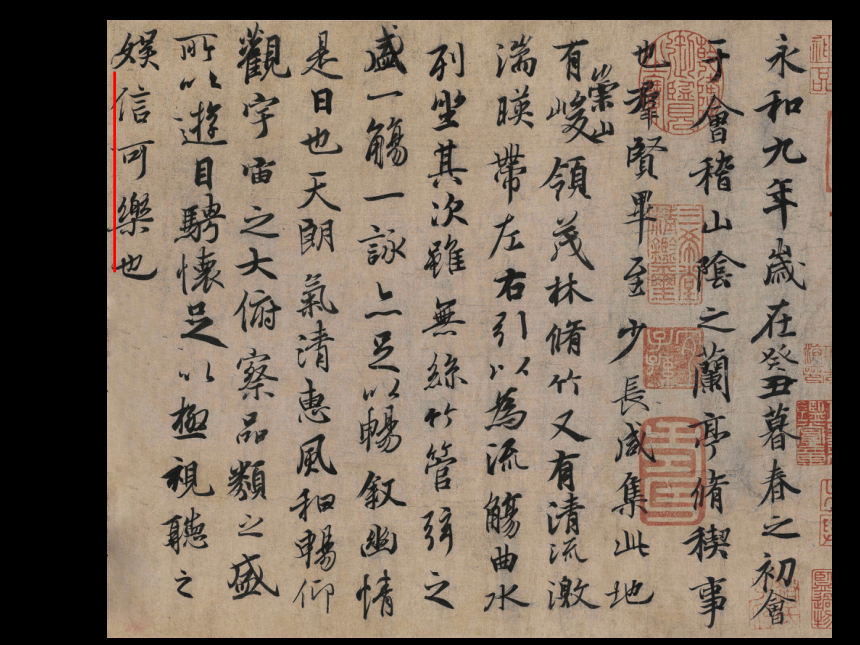 永和九年歲在癸丑暮春之初會
于會稽山陰之蘭亭脩稧事
也群賢畢至少長咸集此地
有崇山峻領茂林脩竹又有清流激
湍暎帶左右引以為流觴曲水
列坐其次雖無絲竹管弦之
盛一觴一詠亦足以暢叙幽情
是日也天朗氣清惠風和暢仰
觀宇宙之大俯察品類之盛
所以遊目騁懷足以極視聽之
娛信可樂也